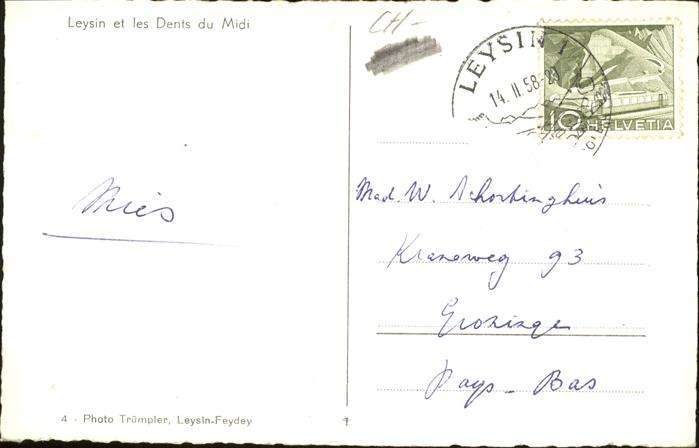 Leysin et les Dents du Midi
CH-
LEYSIN 1
14. II. 58-20
10 HELVETIA
Mies
Mad. W. Schortinghuis
Kraneweg 93
Groninge
Pays-Bas
4 - Photo Trümpler, Leysin-Feydey